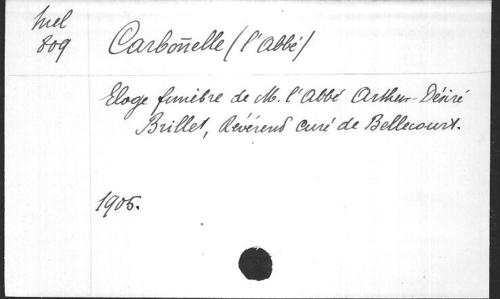 Mel
809
Carbonnelle (l'Abbé)
Eloge funèbre de M. l'Abbé Arthur-Désiré
Brillet, Révérend curé de Bellecourt.
1905.